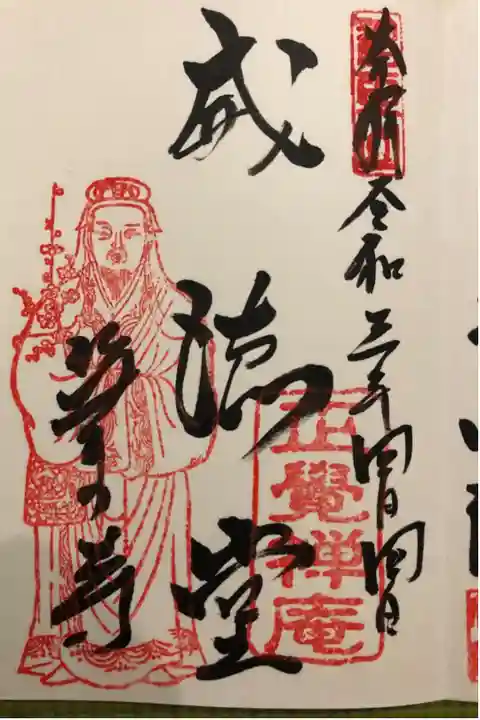 奉拝 令和三年四月四日
正覺禅庵
威徳堂
筆の寺